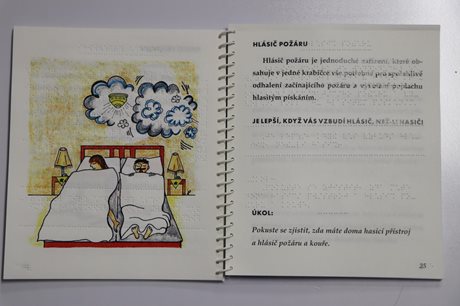 HLÁSIČ POŽÁRU
Hlásič požáru je jednoduché zařízení, které ob-
sahuje v jedné krabičce vše potřebné pro spolehlivé
odhalení začínajícího požáru a vyvolání poplachu
hlasitým pískáním.
JE LEPŠÍ, KDYŽ VÁS VZBUDÍ HLÁSIČ, NEŽ-LI HASIČ!
ÚKOL:
Pokuste se zjistit, zda máte doma hasicí přístroj
a hlásič požáru a kouře.
25